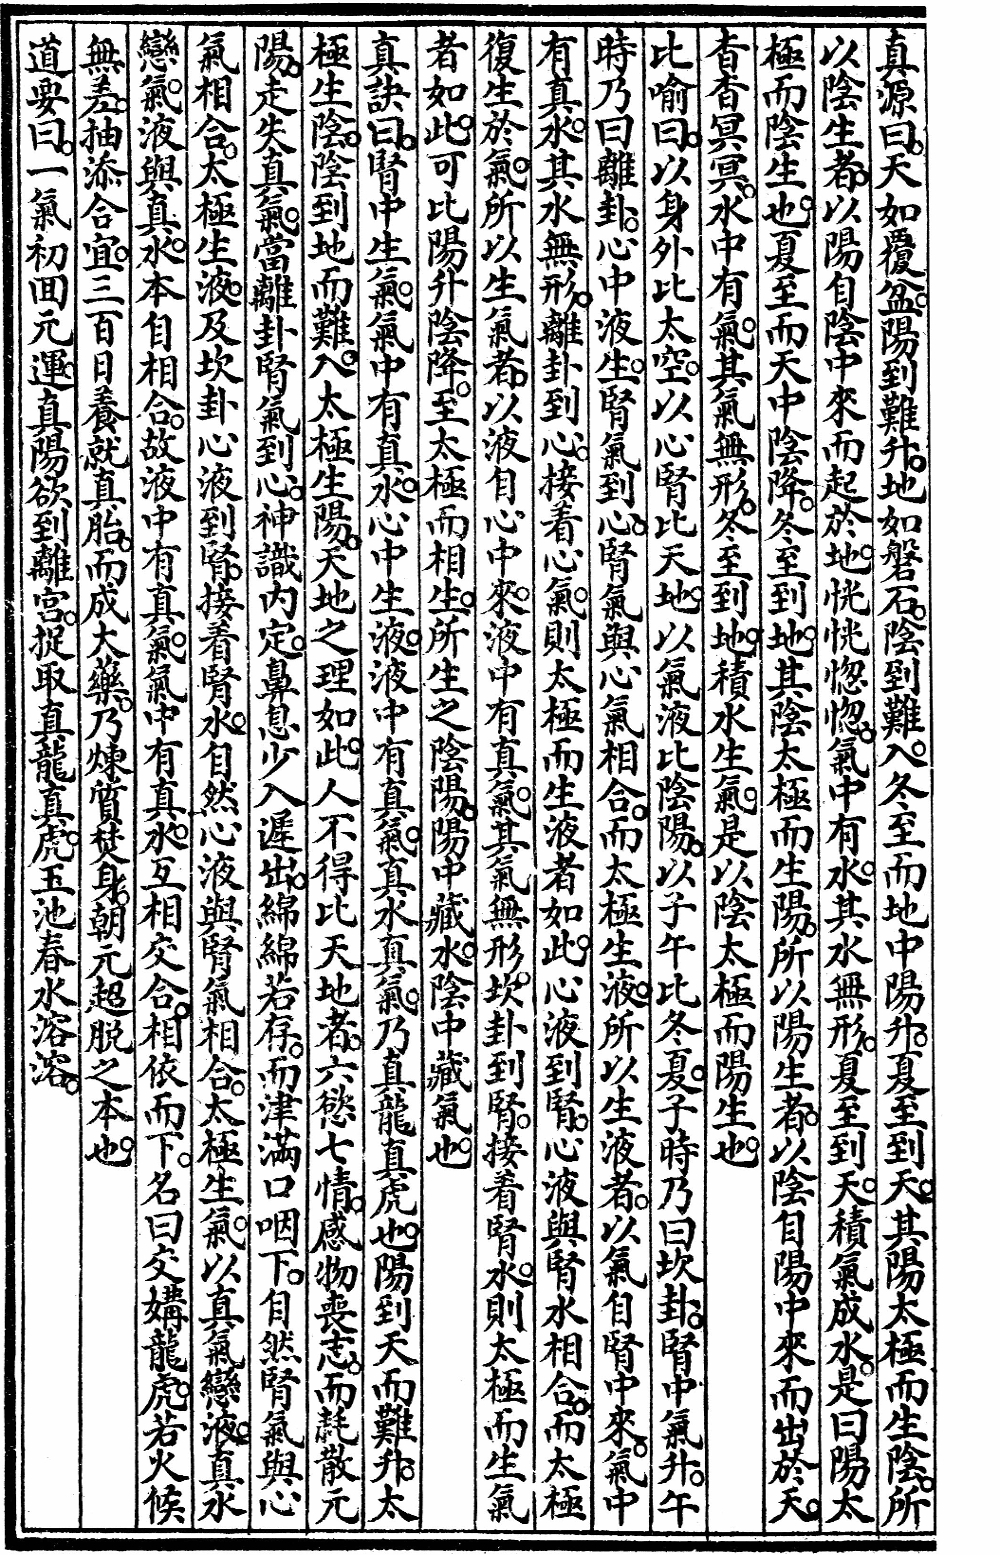 真源曰。天如覆盆。陽到難升。地如磐石。陰到難入。冬至而地中陽升。夏至到天。其陽太極而生陰。所
以陰生者。以陽自陰中來而起於地。恍恍惚惚。氣中有水。其水無形。夏至到天。積氣成水。是曰陽太
極而陰生也。夏至而天中陰降。冬至到地。其陰太極而生陽。所以陽生者。以陰自陽中來而出於天。
杳杳冥冥。水中有氣。其氣無形。冬至到地。積水生氣。是以陰太極而陽生也。
比喻曰。以身外比太空。以心腎比天地。以氣液比陰陽。以子午比冬夏。子時乃曰坎卦。腎中氣升。午
時乃曰離卦。心中液生。腎氣到心。腎氣與心氣相合。而太極生液。所以生液者。以氣自腎中來。氣中
有真水。其水無形。離卦到心。接着心氣。則太極而生液者如此。心液到腎。心液與腎水相合。而太極
復生於氣。所以生氣者。以液自心中來。液中有真氣。其氣無形。坎卦到腎。接着腎水。則太極而生氣
者如此。可比陽升陰降。至太極而相生。所生之陰陽。陽中藏水。陰中藏氣也。
真訣曰。腎中生氣。氣中有真水。心中生液。液中有真氣。真水真氣。乃真龍真虎也。陽到天而難升。太
極生陰。陰到地而難入。太極生陽。天地之理如此。人不得比天地者。六慾七情。感物喪志。而耗散元
陽。走失真氣。當離卦腎氣到心。神識內定。鼻息少入遲出。綿綿若存。而津滿口咽下。自然腎氣與心
氣相合。太極生液。及坎卦心液到腎。接着腎水。自然心液與腎氣相合。太極生氣。以真氣戀液。真水
戀氣。液與真水。本自相合。故液中有真氣。氣中有真水。互相交合。相依而下。名曰交媾龍虎。若火候
無差。抽添合宜。三百日養就真胎。而成大藥。乃煉質焚身。朝元超脫之本也。
道要曰。一氣初回元運。真陽欲到離宮。捉取真龍真虎。玉池春水溶溶。